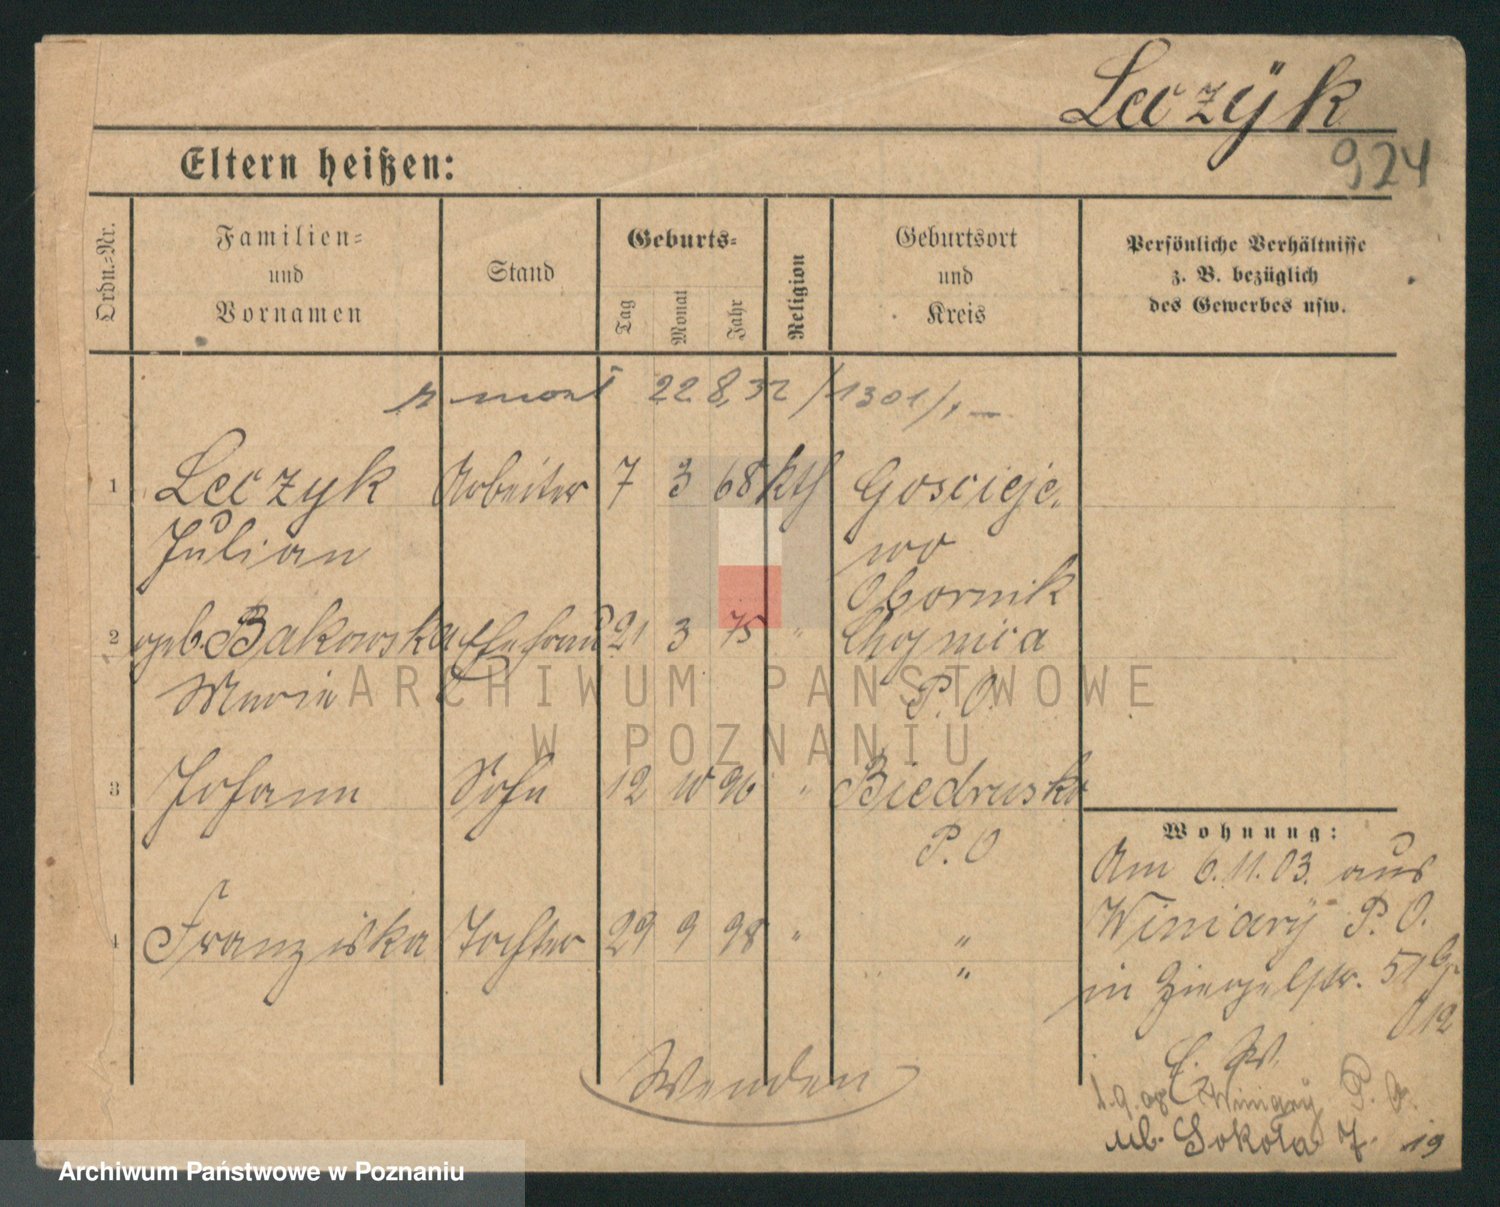 Leczÿk
924
Eltern heißen:
Ordn.-Nr.
Familien-
und
Vornamen
Stand
Geburts-
Tag
Monat
Jahr
Religion
Geburtsort
und
Kreis
Persönliche Verhältnisse
z. B. bezüglich
des Gewerbes usw.
22 8,32 /1301/
1 Leczyk Arbeiter 7 3 68 kth Goscieje
Julian wo
Obornik
2 geb. Bakowska Ehefrau 21 3 75 " Chojnica
Marie P. O.
3 Johann Sohn 12 10 96 " Biedrusko
P. O
4 Franziska Tochter 29 9 98 " "
"
Wohnung:
Am 6.11.03. aus
Winiarÿ P. O.
in Ziegelstr. 51
Wenden
Winiarÿ P.
ul. Sokoła 7. 19
ARCHIWUM PAŃSTWOWE
W POZNANIU
Archiwum Państwowe w Poznaniu